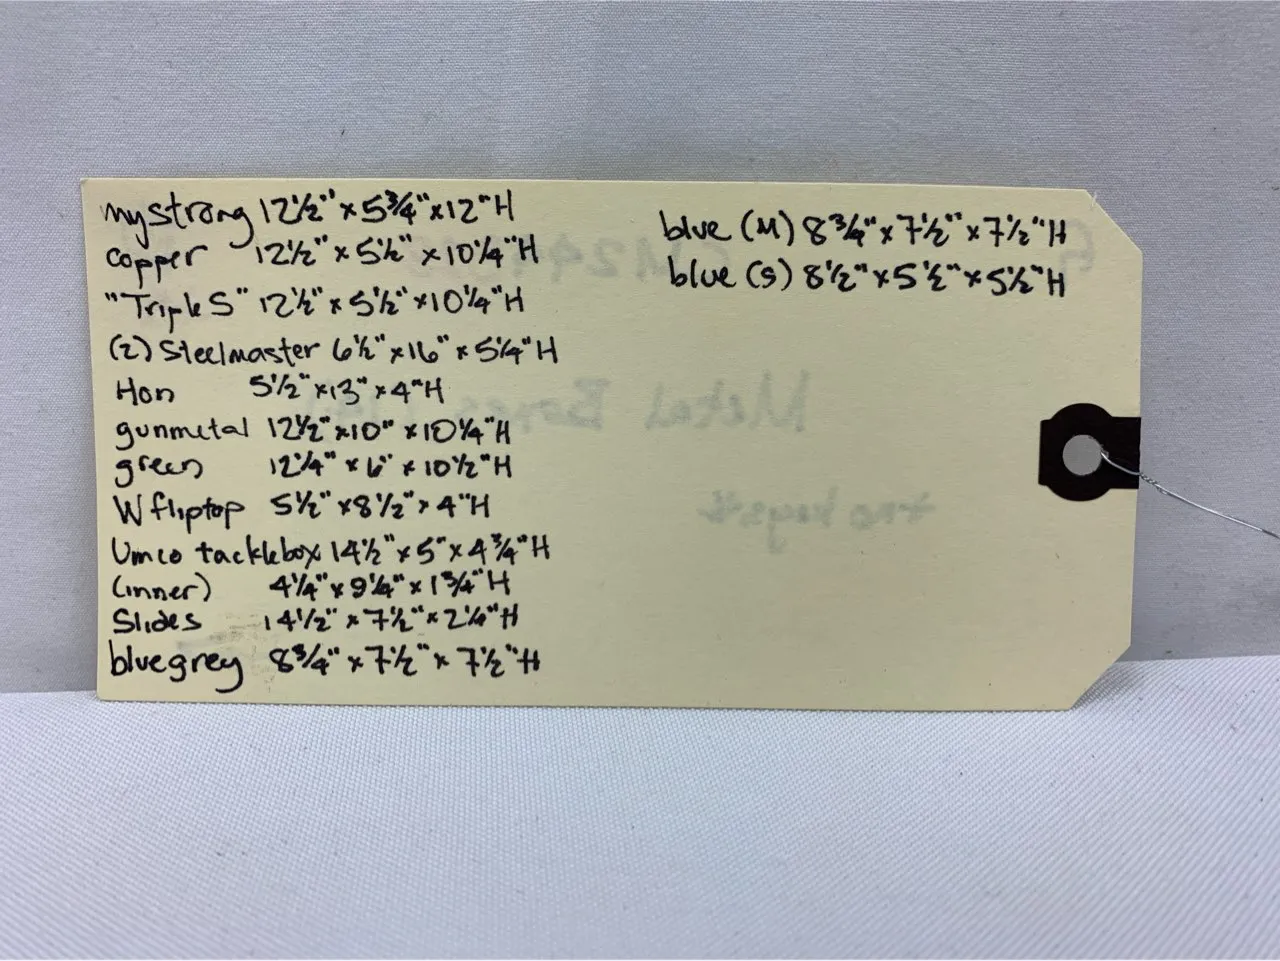 mystrong 12½" x 5¾" x 12" H
copper 12½" x 5½" x 10¼" H
"Triple S" 12½" x 5½" x 10¼" H
(2) Steelmaster 6½" x 16" x 5¼" H
Hon 5½" x 13" x 4" H
gunmetal 12½" x 10" x 10¼" H
green 12¼" x 6" x 10½" H
W fliptop 5½" x 8½" x 4" H
Umco tacklebox 14½" x 5" x 4¾" H
(inner) 4¼" x 9¼" x 1¾" H
Slides 14½" x 7½" x 2¼" H
bluegrey 8¾" x 7½" x 7½" H
blue (M) 8¾" x 7½" x 7½" H
blue (S) 8½" x 5½" x 5½" H
Metal Boxes
**no keys**